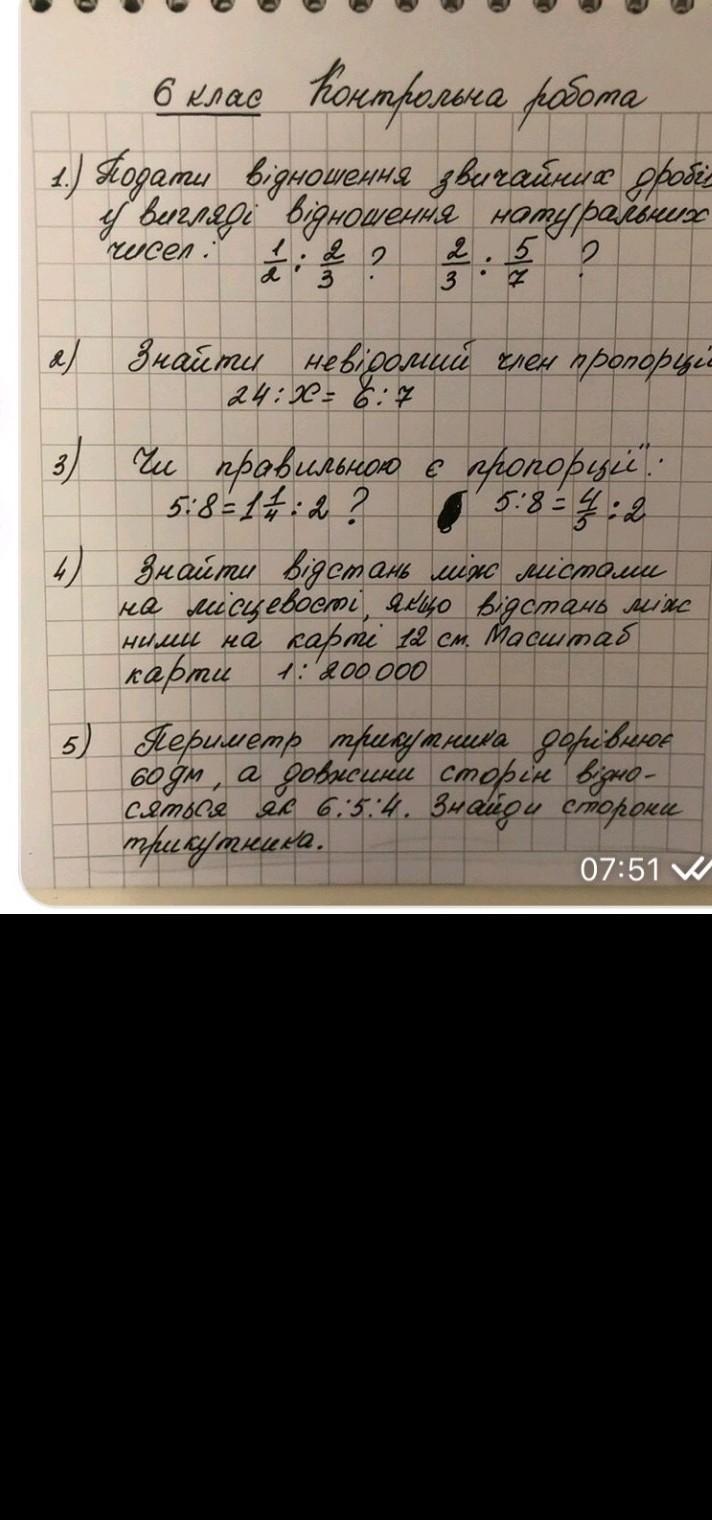 6 клас Контрольна робота
1.) Подати відношення звичайних дробів
у вигляді відношення натуральних
чисел: 1/2 : 2/3 ? 2/3 : 5/7 ?
2) Знайти невідомий член пропорції
24 : х = 6 : 7
3) Чи правильною є пропорції:
5:8 = 1 1/4 : 2 ? 5:8 = 4/5 : 2
4) Знайти відстань між містами
на місцевості, якщо відстань між
ними на карті 12 см. Масштаб
карти 1 : 200 000
5) Периметр трикутника дорівнює
60 дм, а довжини сторін відно-
сяться як 6:5:4. Знайди сторони
трикутника.
07:51